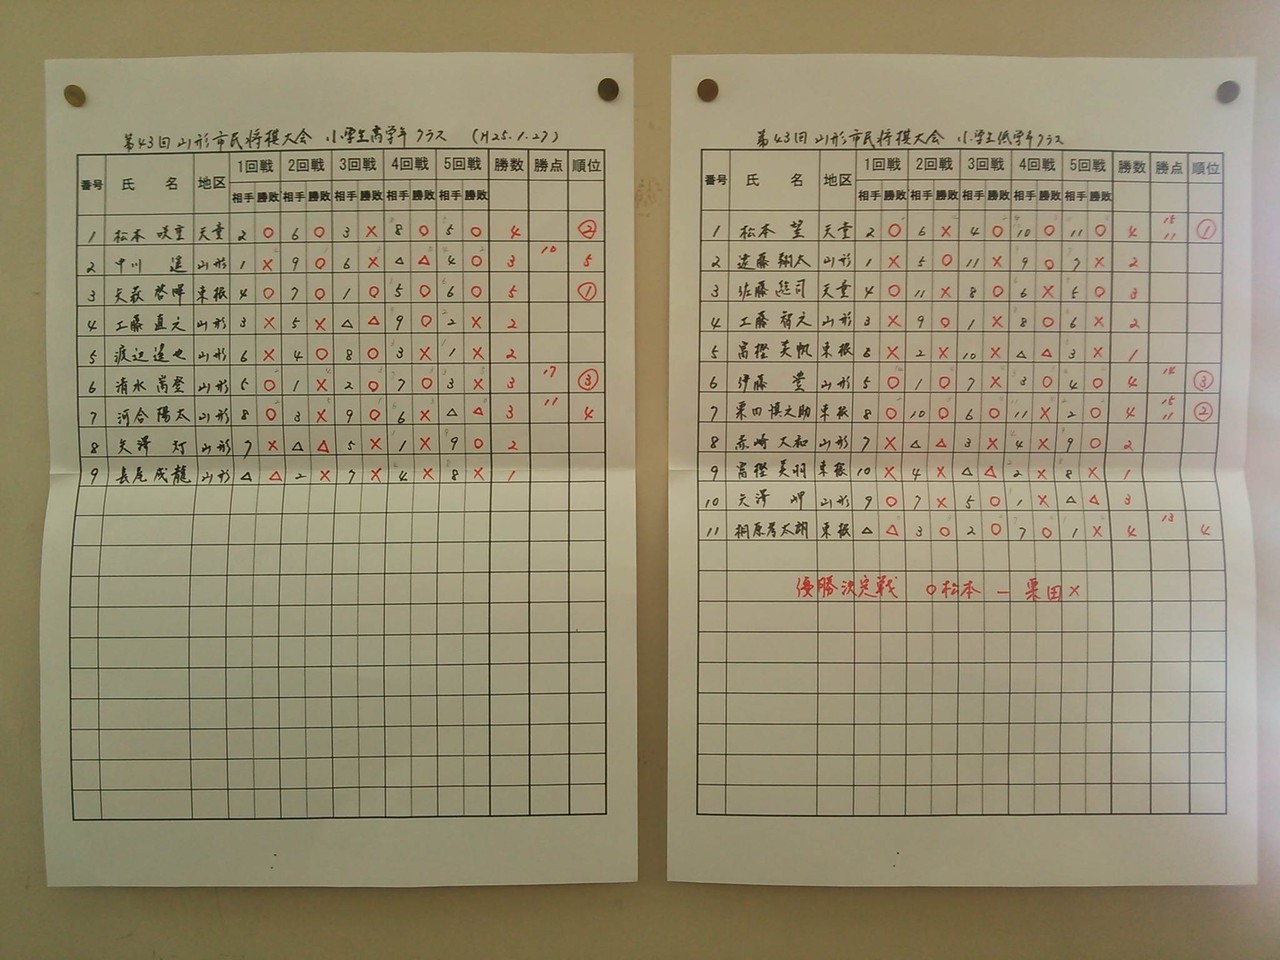 第43回 山形市民将棋大会 小学生高学年クラス (H25.1.27)
番号 氏名 地区 1回戦 2回戦 3回戦 4回戦 5回戦 勝数 勝点 順位
相手 勝敗 相手 勝敗 相手 勝敗 相手 勝敗 相手 勝敗
1 松本 咲重 天童 2 ○ 6 ○ 3 × 8 ○ 5 ○ 4 ②
2 中川 遥 山形 1 × 9 ○ 6 × △ △ 4 ○ 3 10 5
3 矢萩 啓暉 東根 4 ○ 7 ○ 1 ○ 5 ○ 6 ○ 5 ①
4 工藤 直之 山形 3 × 5 × △ △ 9 ○ 2 × 2
5 渡辺 達也 山形 6 × 4 ○ 8 ○ 3 × 1 × 2
6 清水 嵩登 山形 5 ○ 1 × 2 ○ 7 ○ 3 × 3 17 ③
7 河合 陽太 山形 8 ○ 3 × 9 ○ 6 × △ △ 3 11 4
8 矢澤 灯 山形 7 × △ △ 5 × 1 × 9 ○ 2
9 長尾 成龍 山形 △ △ 2 × 7 × 4 × 8 × 1
第43回 山形市民将棋大会 小学生低学年クラス
番号 氏名 地区 1回戦 2回戦 3回戦 4回戦 5回戦 勝数 勝点 順位
相手 勝敗 相手 勝敗 相手 勝敗 相手 勝敗 相手 勝敗
1 松本 望 天童 2 ○ 6 × 4 ○ 10 ○ 11 ○ 4 15 11 ①
2 遠藤 翔太 山形 1 × 5 ○ 11 × 9 ○ 7 × 2
3 佐藤 総司 天童 4 ○ 11 × 8 ○ 6 × 5 ○ 3
4 工藤 智之 山形 3 × 9 ○ 1 × 8 ○ 6 × 2
5 富樫 美帆 東根 6 × 2 × 10 × △ △ 3 × 1
6 伊藤 豊 山形 5 ○ 1 ○ 7 × 3 ○ 4 ○ 4 14 ③
7 栗田 慎之助 東根 8 ○ 10 ○ 6 ○ 11 × 2 ○ 4 15 11 ②
8 赤崎 大和 山形 7 × △ △ 3 × 4 × 9 ○ 2
9 富樫 美羽 東根 10 × 4 × △ △ 2 × 8 × 1
10 矢澤 岬 山形 9 ○ 7 × 5 ○ 1 × △ △ 3
11 桐原 太朗 東根 △ △ 3 ○ 2 ○ 7 ○ 1 × 4 13 4
優勝決定戦 ○松本 － 栗田×